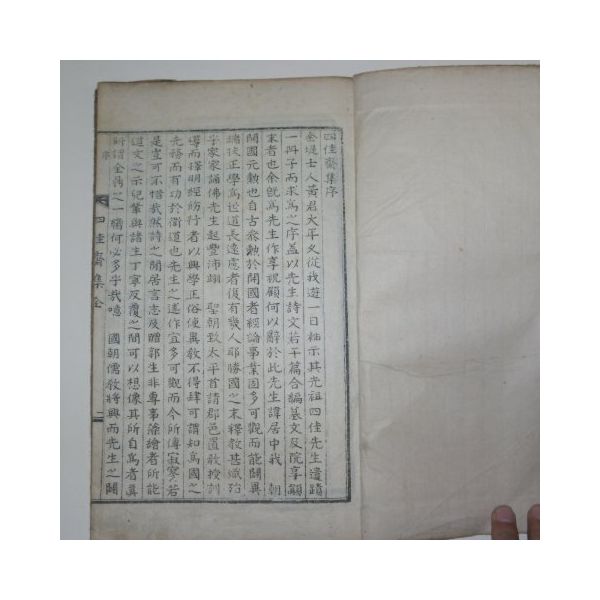 四佳齋集序
金堤士人黃君大年久從我遊一日袖示其先祖四佳先生遺蹟
一冊子而求爲之序蓋以先生詩文若干篇合編墓文及院享顚
末者也余旣爲先生作享祝顧何以辭於此先生諱居中我 朝
開國元勳也自古策勳於開國者經論事業固多可觀而能闢異
端扶正學爲世道長遠慮者復有幾人耶勝國之末釋敎甚熾治
字家家誦佛先生起豐沛翊 聖朝致太平首請郡邑置敎授訓
導而擇明經飭行者以興學正俗使異敎不得肆可謂知爲國之
先務而有功於衛道也先生之述作宜多可觀而今所傳寂寥若
是豈可不惜哉然詩之閒居言志及贈郭生非專事藻繪者所能
道文之示兒輩與諸生丁寧反覆之間可以想像其所自爲者眞
所謂全鼎之一臠何必多乎哉噫 國朝儒敎將興而先生之闢
序
四佳齋集 全
二